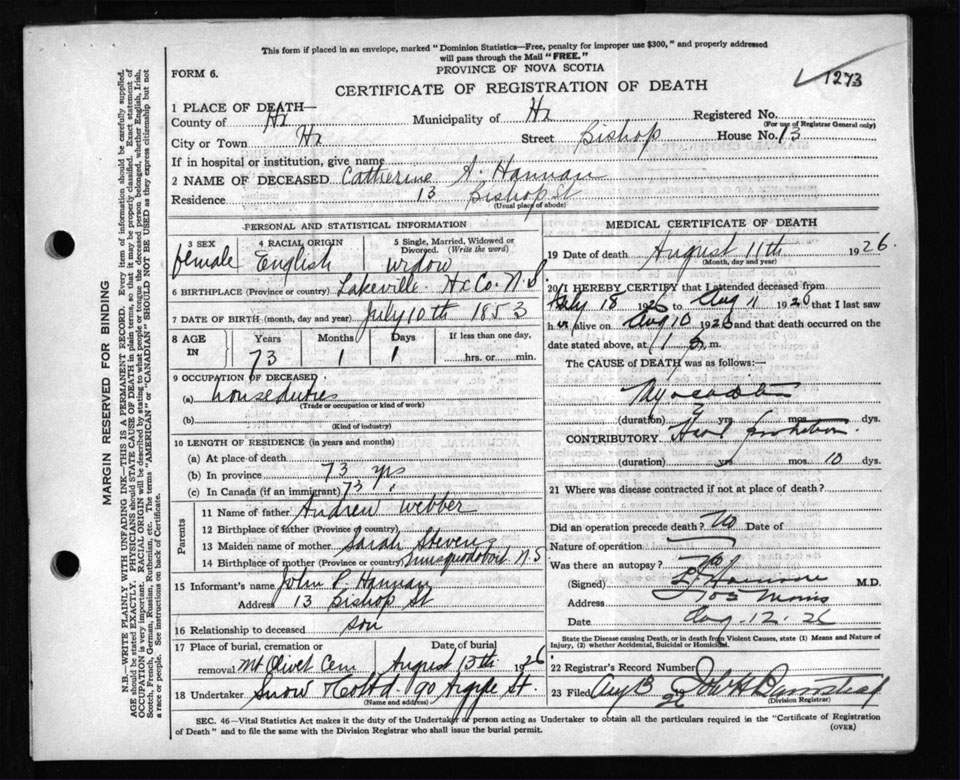 This form if placed in an envelope, marked "Dominion Statistics—Free, penalty for improper use $300," and properly addressed
will pass through the Mail "FREE."
PROVINCE OF NOVA SCOTIA
FORM 6.
CERTIFICATE OF REGISTRATION OF DEATH
1273
1 PLACE OF DEATH—
County of Hx Municipality of Hx Registered No.
(For use of Registrar General only)
City or Town Hx Street Bishop House No. 13
If in hospital or institution, give name
2 NAME OF DECEASED Catherine A. Hannan
Residence 13 Bishop St
(Usual place of abode)
PERSONAL AND STATISTICAL INFORMATION
3 SEX 4 RACIAL ORIGIN 5 Single, Married, Widowed or Divorced. (Write the word)
female English widow
6 BIRTHPLACE (Province or country) Lakeville Hx Co. N.S
7 DATE OF BIRTH (month, day and year) July 10th 1853
8 AGE IN Years Months Days If less than one day,
73 1 1 hrs. or min.
9 OCCUPATION OF DECEASED
(a) house duties
(Trade or occupation or kind of work)
(b)
(Kind of industry)
10 LENGTH OF RESIDENCE (in years and months)
(a) At place of death
(b) In province 73 yrs
(c) In Canada (if an immigrant) 73
Parents
11 Name of father Andrew Webber
12 Birthplace of father (Province or country)
13 Maiden name of mother Sarah Stevens
14 Birthplace of mother (Province or country) N S
15 Informant's name John P. Hannan
Address 13 Bishop St
16 Relationship to deceased son
17 Place of burial, cremation or removal Mt Olivet Cem Date of burial August 13th 1926
18 Undertaker Snow & Co Ltd - 90 Argyle St.
(Name and address)
MEDICAL CERTIFICATE OF DEATH
19 Date of death August 11th 1926.
(Month, day and year)
20 I HEREBY CERTIFY that I attended deceased from
July 18 1926 to Aug 11 1926 that I last saw
h er alive on Aug 10 1926 and that death occurred on the
date stated above, at m.
The CAUSE OF DEATH was as follows:—
(duration) yrs. mos. dys.
CONTRIBUTORY
(duration) yrs. mos. 10 dys.
21 Where was disease contracted if not at place of death?
Did an operation precede death? No Date of
Nature of operation
Was there an autopsy? No
(Signed) M.D.
Address 105 Morris
Date Aug-12-26
State the Disease causing Death, or in death from Violent Causes, state (1) Means and Nature of
Injury, (2) whether Accidental, Suicidal or Homicidal.
22 Registrar's Record Number
23 Filed Aug 13 26
(Division Registrar)
SEC. 46—Vital Statistics Act makes it the duty of the Undertaker or person acting as Undertaker to obtain all the particulars required in the "Certificate of Registration
of Death" and to file the same with the Division Registrar who shall issue the burial permit.
(OVER)
MARGIN RESERVED FOR BINDING
N.B.—WRITE PLAINLY WITH UNFADING INK—THIS IS A PERMANENT RECORD. Every item of information should be carefully supplied.
AGE should be stated EXACTLY. PHYSICIANS should STATE CAUSE OF DEATH in plain terms, so that it may be properly classified. Exact statement of
OCCUPATION is very important. RACIAL ORIGIN will be described by stating to what people or tongue the deceased person belonged, whether English, Irish,
Scotch, French, German, Russian, Ruthenian, etc. The terms "AMERICAN" or "CANADIAN" SHOULD NOT BE USED as they express citizenship but not
a race or people. See instructions on back of Certificate.